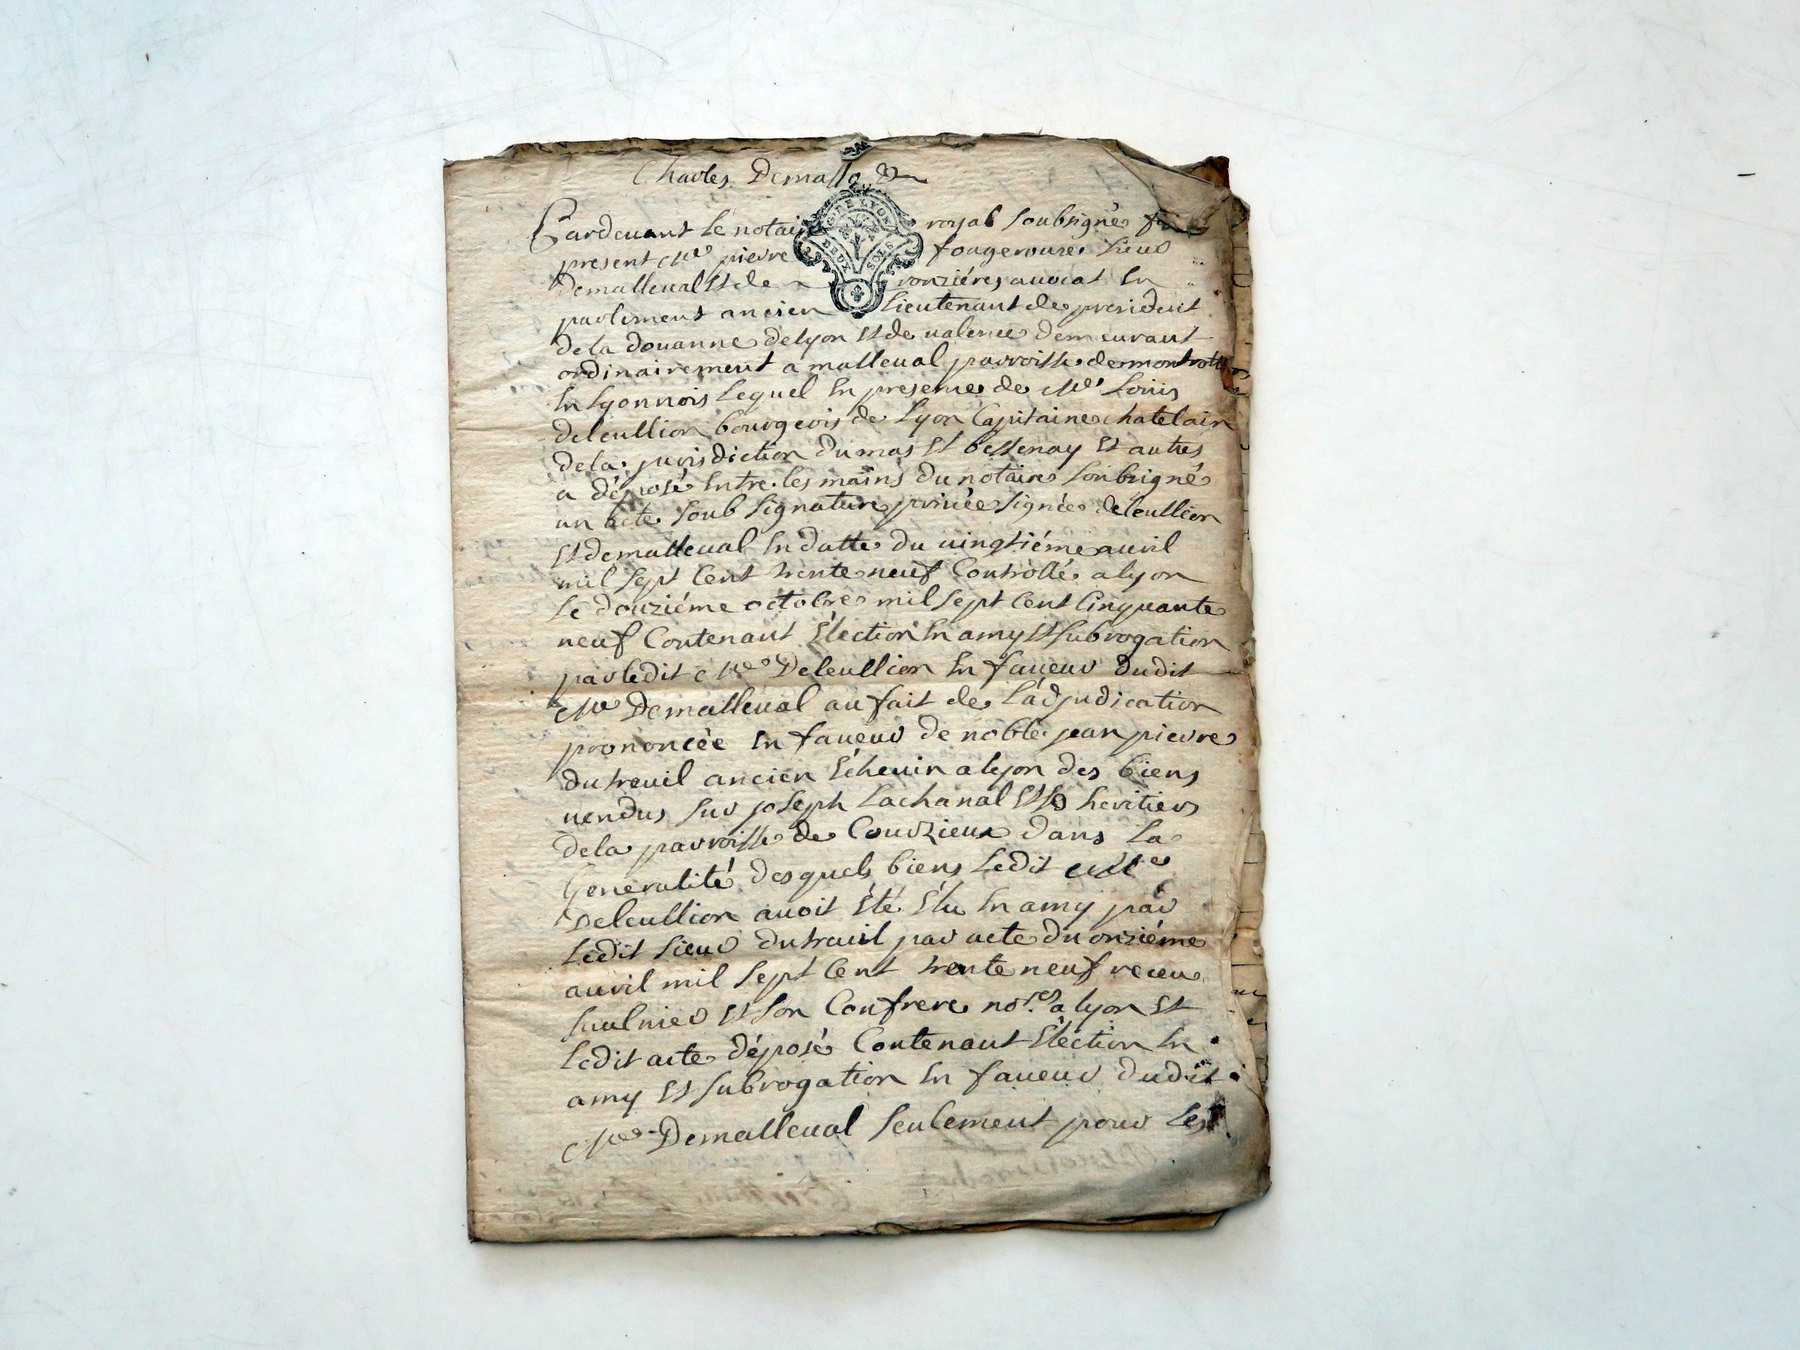 Charles Demasso
G. DE LYON
DEUX SOLS
Pardeuant le notaire royal soubsigné fu
present Me pierre fougerouse sieur
Demalleual Et de ronziéres auocat En
parlement ancien Lieutenant de president
dela douanne delyon Et de ualence demeurant
ordinairement a malleual parroisse demontrotti
En Lyonnois Lequel En presence de Me Louis
deleullion bourgeois de Lyon Capitaine chatelain
dela jurisdiction dumas Et bessenay Et autres
a déposé Entre les mains du notaire soubsigné
un acte soub signature privée signée deleullion
Et demalleual En datte du uingtiéme auril
mil sept Cent trente neuf Controllé alyon
Le douziéme octobre mil sept Cent Cinquante
neuf Contenant Election En amy Et subrogation
par ledit Me Deleullion En faueur dudit
Me Demalleual au fait de L'adjudication
prononcée En faueur de noble jean pierre
dutreuil ancien Echeuin alyon des biens
uendus sur joseph Lachanal Et ses heritiers
dela parroisse de Courzieux dans La
Generalité desquels biens Ledit Me
Deleullion auoit Eté Elu En amy par
Ledit sieur dutreuil par acte du onziéme
auril mil sept Cent trente neuf receu
saulnier Et son Confrere nores a lyon Et
Ledit acte déposé Contenant Election En
amy Et subrogation En faueur dudit
Me Demalleual seulement pour Les